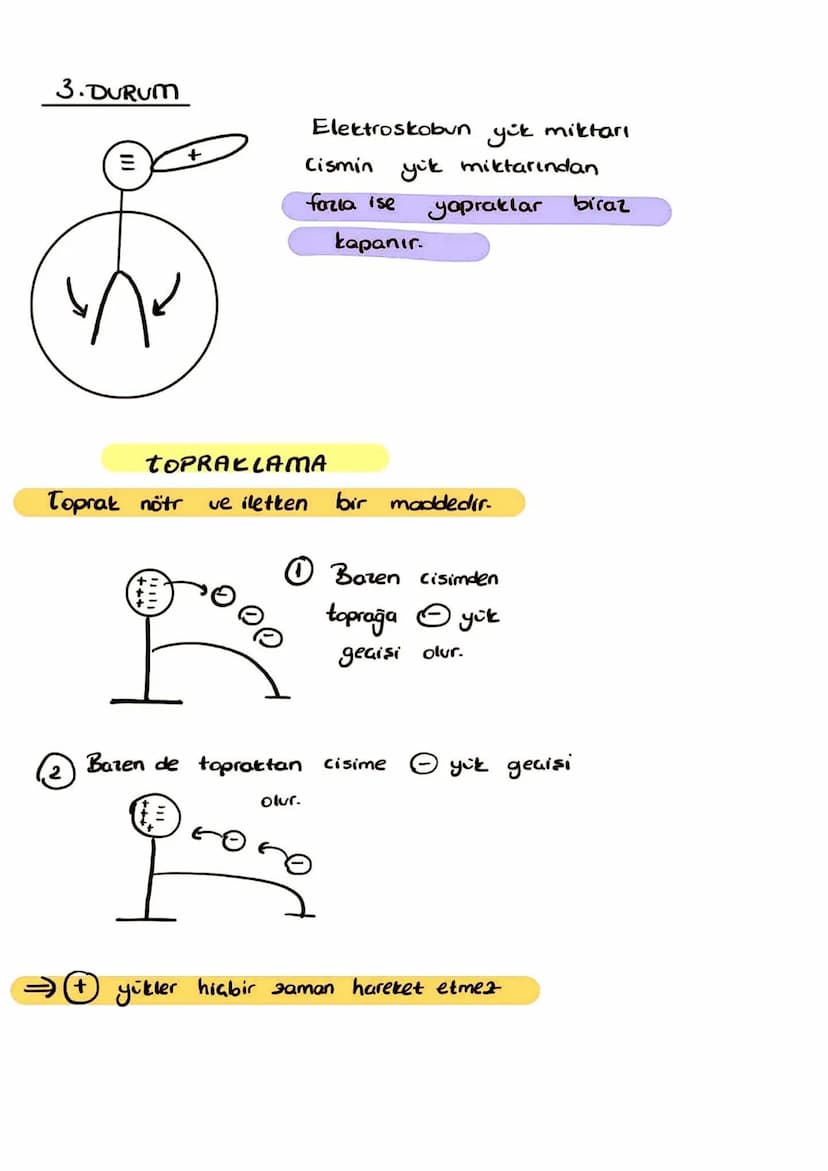 3.DURUM
Elektroskobun yük miktarı
Cismin yük miktarından
fazla ise yapraklar biraz
kapanır.
TOPRAKLAMA
Toprak nötr ve iletken bir maddedir.
① Bazen cisimden
toprağa ⊖ yük
geçişi olur.
② Bazen de topraktan cisime ⊖ yük geçişi
olur.
⇒ ⊕ yükler hiçbir zaman hareket etmez